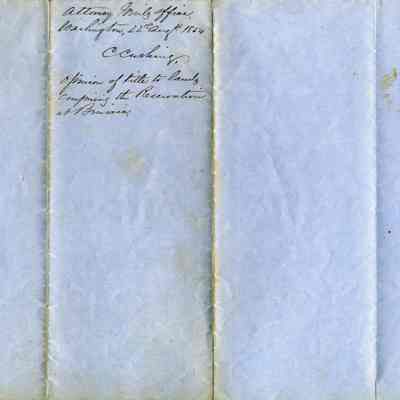 Attorney Genls Office,
Washington, 22d Augt. 1854
C Cushing,
Opinion of title to lands
Comprising the Reservation
at Benicia,